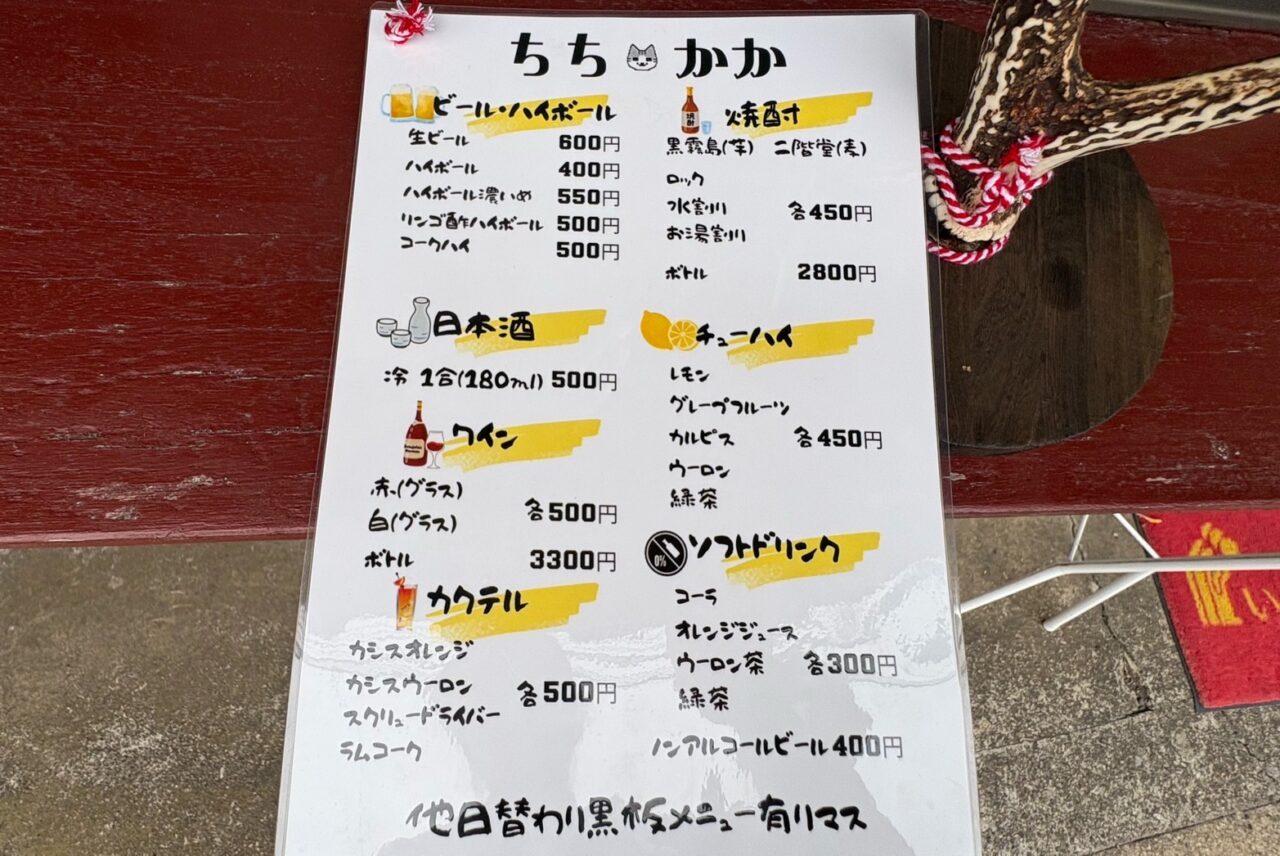 ちち かか
ビール・ハイボール
生ビール 600円
ハイボール 400円
ハイボール濃いめ 550円
リンゴ酢ハイボール 500円
コークハイ 500円
日本酒
冷 1合(180ml) 500円
ワイン
赤(グラス)
白(グラス)
各500円
ボトル 3300円
カクテル
カシスオレンジ
カシスウーロン
各500円
スクリュードライバー
ラムコーク
焼酎
焼酎
黒霧島(芋) 二階堂(麦)
ロック
水割り 各450円
お湯割り
ボトル 2800円
チューハイ
レモン
グレープフルーツ
カルピス 各450円
ウーロン
緑茶
0%
ソフトドリンク
コーラ
オレンジジュース
ウーロン茶 各300円
緑茶
ノンアルコールビール 400円
他日替わり黒板メニュー有リマス